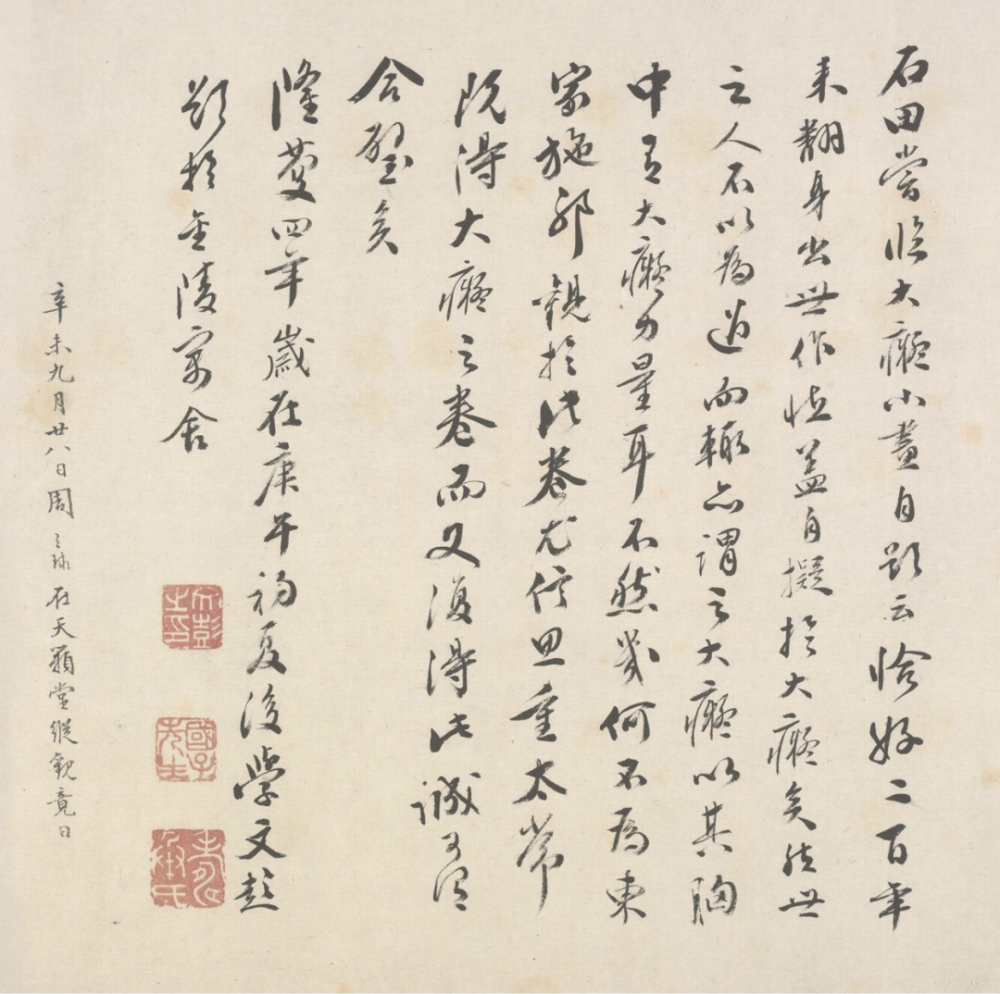 石田嘗臨大癡小畫自題云恰好二百年
来翻身出世作怪蓋自擬於大癡矣然世
之人不以為過而輒亦謂之大癡以其胸
中有大癡力量耳不然幾何不為東
家施耶觀於此卷尤信思重太常
既得大癡之卷而又復得此誠可謂
合璧矣
隆慶四年歲在庚午初夏後學文彭
題於金陵寓舍
文彭之印
國子先生
辛未九月廿八日周天球在天籟堂縱觀竟日